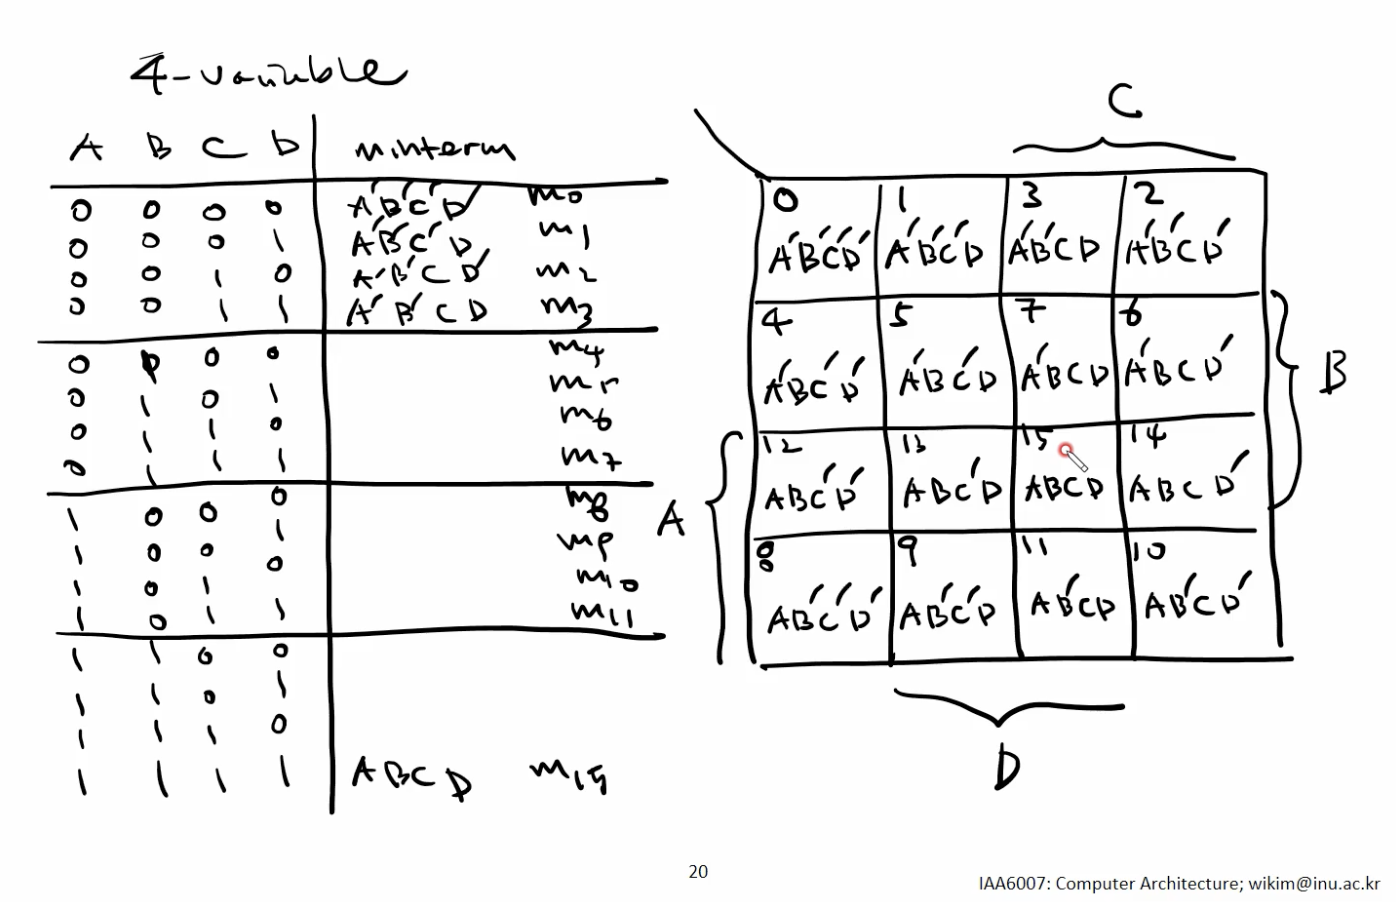 4-variable
A B C D minterm
0 0 0 0 A'B'C'D' m0
0 0 0 1 A'B'C'D m1
0 0 1 0 A'B'CD' m2
0 0 1 1 A'B'CD m3
0 0 0 0 m4
0 1 0 1 m5
0 1 1 0 m6
0 1 1 1 m7
1 0 0 0 m8
1 0 0 1 m9
1 0 1 0 m10
1 0 1 1 m11
1 1 0 0
1 1 0 1
1 1 1 0
1 1 1 1 ABCD m15
C
0 1 3 2
A'B'C'D' A'B'C'D A'B'CD A'B'CD'
4 5 7 6
A'BC'D' A'BC'D A'BCD A'BCD'
B
12 13 15 14
ABC'D' ABC'D ABCD ABCD'
A
8 9 11 10
AB'C'D' AB'C'D AB'CD AB'CD'
D
20
IAA6007: Computer Architecture; wikim@inu.ac.kr